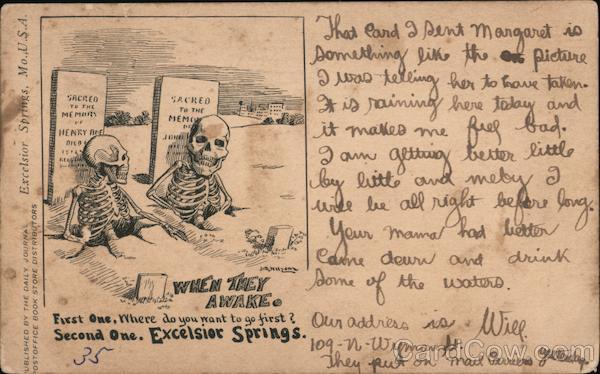 Excelsior Springs, Mo., U.S.A.
PUBLISHED BY THE DAILY JOURNAL
POSTOFFICE BOOK STORE DISTRIBUTORS
SACRED
TO THE
MEMORY
OF
HENRY
DIED
SACRED
TO THE
MEMO
JOHN
WHEN THEY
AWAKE.
First One. Where do you want to go first?
Second One. Excelsior Springs.
35
That Card I sent Margaret is
something like the picture
I was telling her to have taken.
It is raining here today and
it makes me feel bad.
I am getting better little
by little and meby I
will be all right before long.
Your mama had better
Come down and drink
some of the waters.
Our address is Will
109-N-
They put on Mail Carriers
CardCow.com